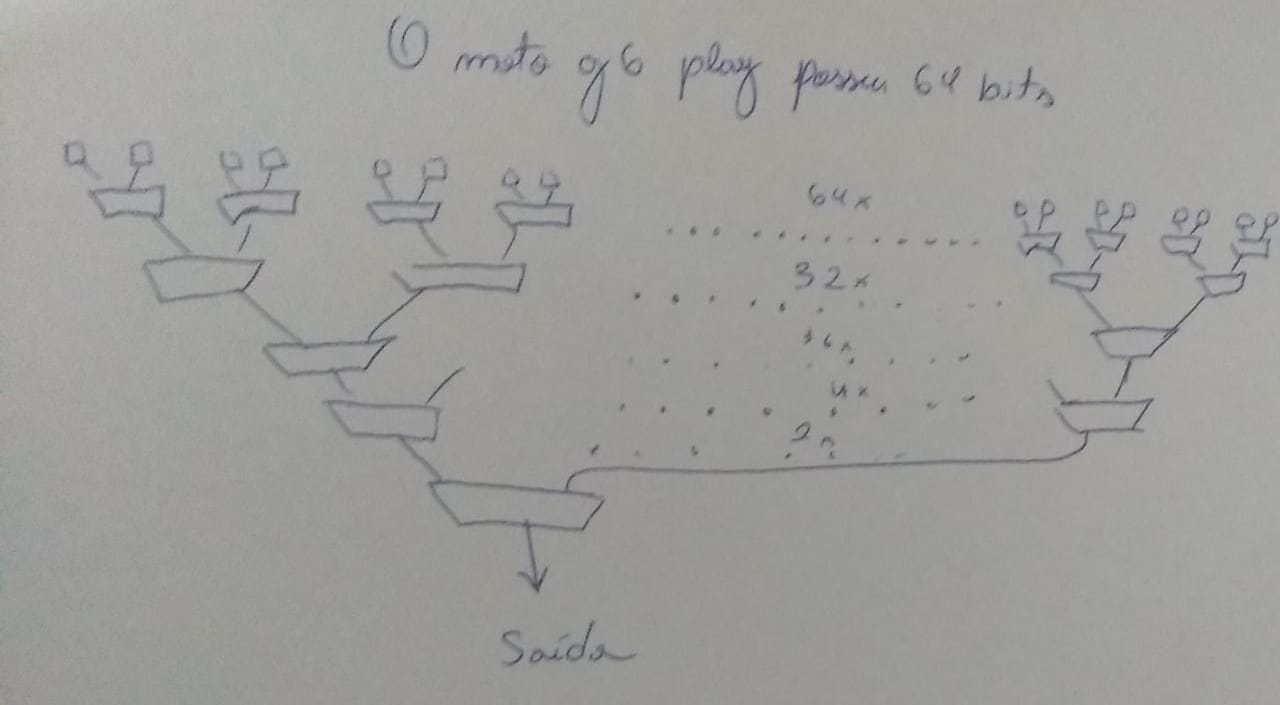 O moto g6 play possui 64 bits
64x
32x
16x
4x
2x
Saída